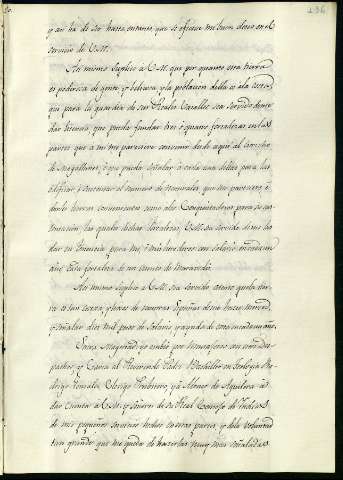 196
y así ha de ser hasta entanto que se ofresca mi buen deseo en el
servicio de V.M.
Asi mismo Suplico á V.M. que por quanto esta tierra
es poderosa de gente y belicosa y la poblacion della es á la costa,
que para la guardia de sus Reales Vasallos sea servido de me
dar licencia que pueda fundar tres ó quatro fortalezas en las
partes que á mi me pareciere convenir desde aquí al Estrecho
de Magallanes, é que pueda señalar á cada una dellas para las
edificar y sustentar el numero de Naturales que me pareciere é
darles tierras convenientes como á los Conquistadores para su sus-
tentacion las quales dichas fortalezas V.M. sea servido de me las
dar en tenencia para mi, é mis herederos con salario en cada un
año cada fortaleza de un cuento de maravedís.
Asi mismo Suplico á V.M. sea servido atento que la tier-
ra es tan costosa y lexos de nuestras Españas de me hacer merced,
y señalar diez mil pesos de salario y ayuda de costa en cada un año.
Sacra Magestad yo embio por Mensageros con mis Des-
pachos y Carta al Reverendo Padre Bachiller en Teología Ro-
drigo Gonzalez Clerigo Presbitero, y á Alonso de Aguilera á
dar cuenta á V.M. y Señores de Su Real Consejo de Indias
de mis pequeños servicios hechos en estas partes y de la voluntad
tan grande que me queda de hacerlos muy mas señalados